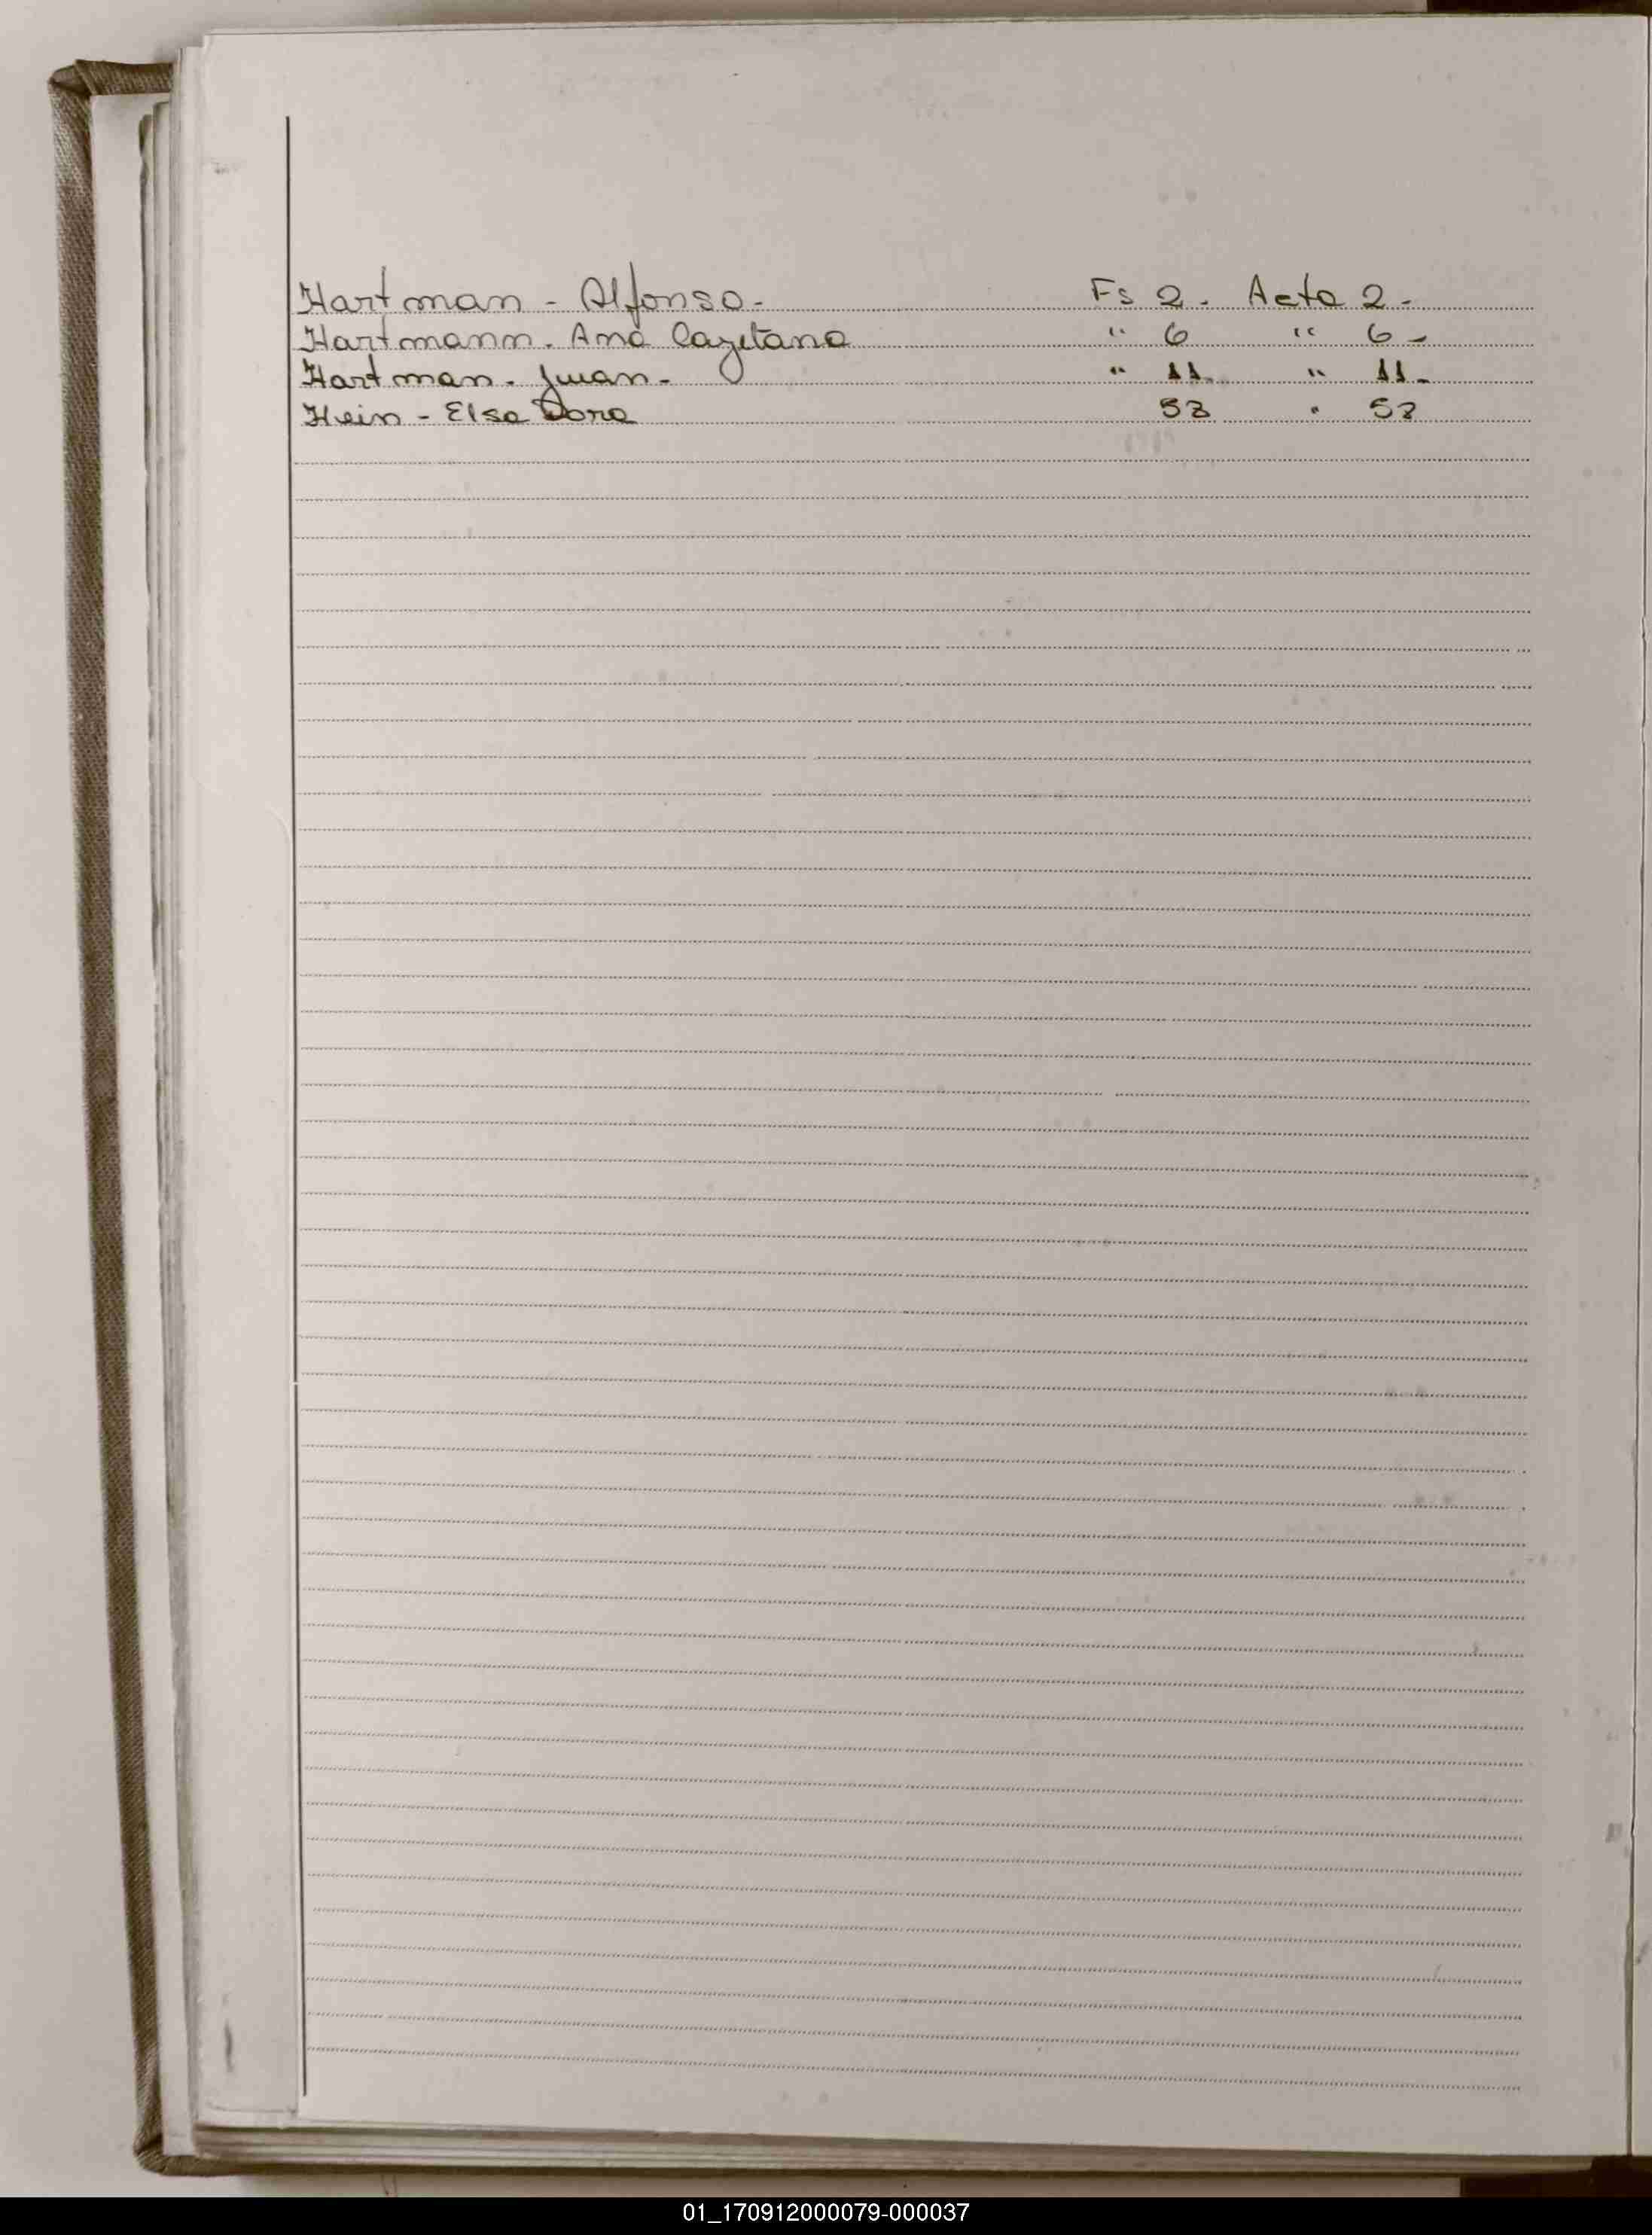 Hartman - Alfonso - Fs 2 - Acta 2 -
Hartmann - Ana Cayetana " 6 " 6 -
Hartman - Juan - " 11 - " 11 -
Hein - Elsa Dora 58 " 58
01_170912000079-000037